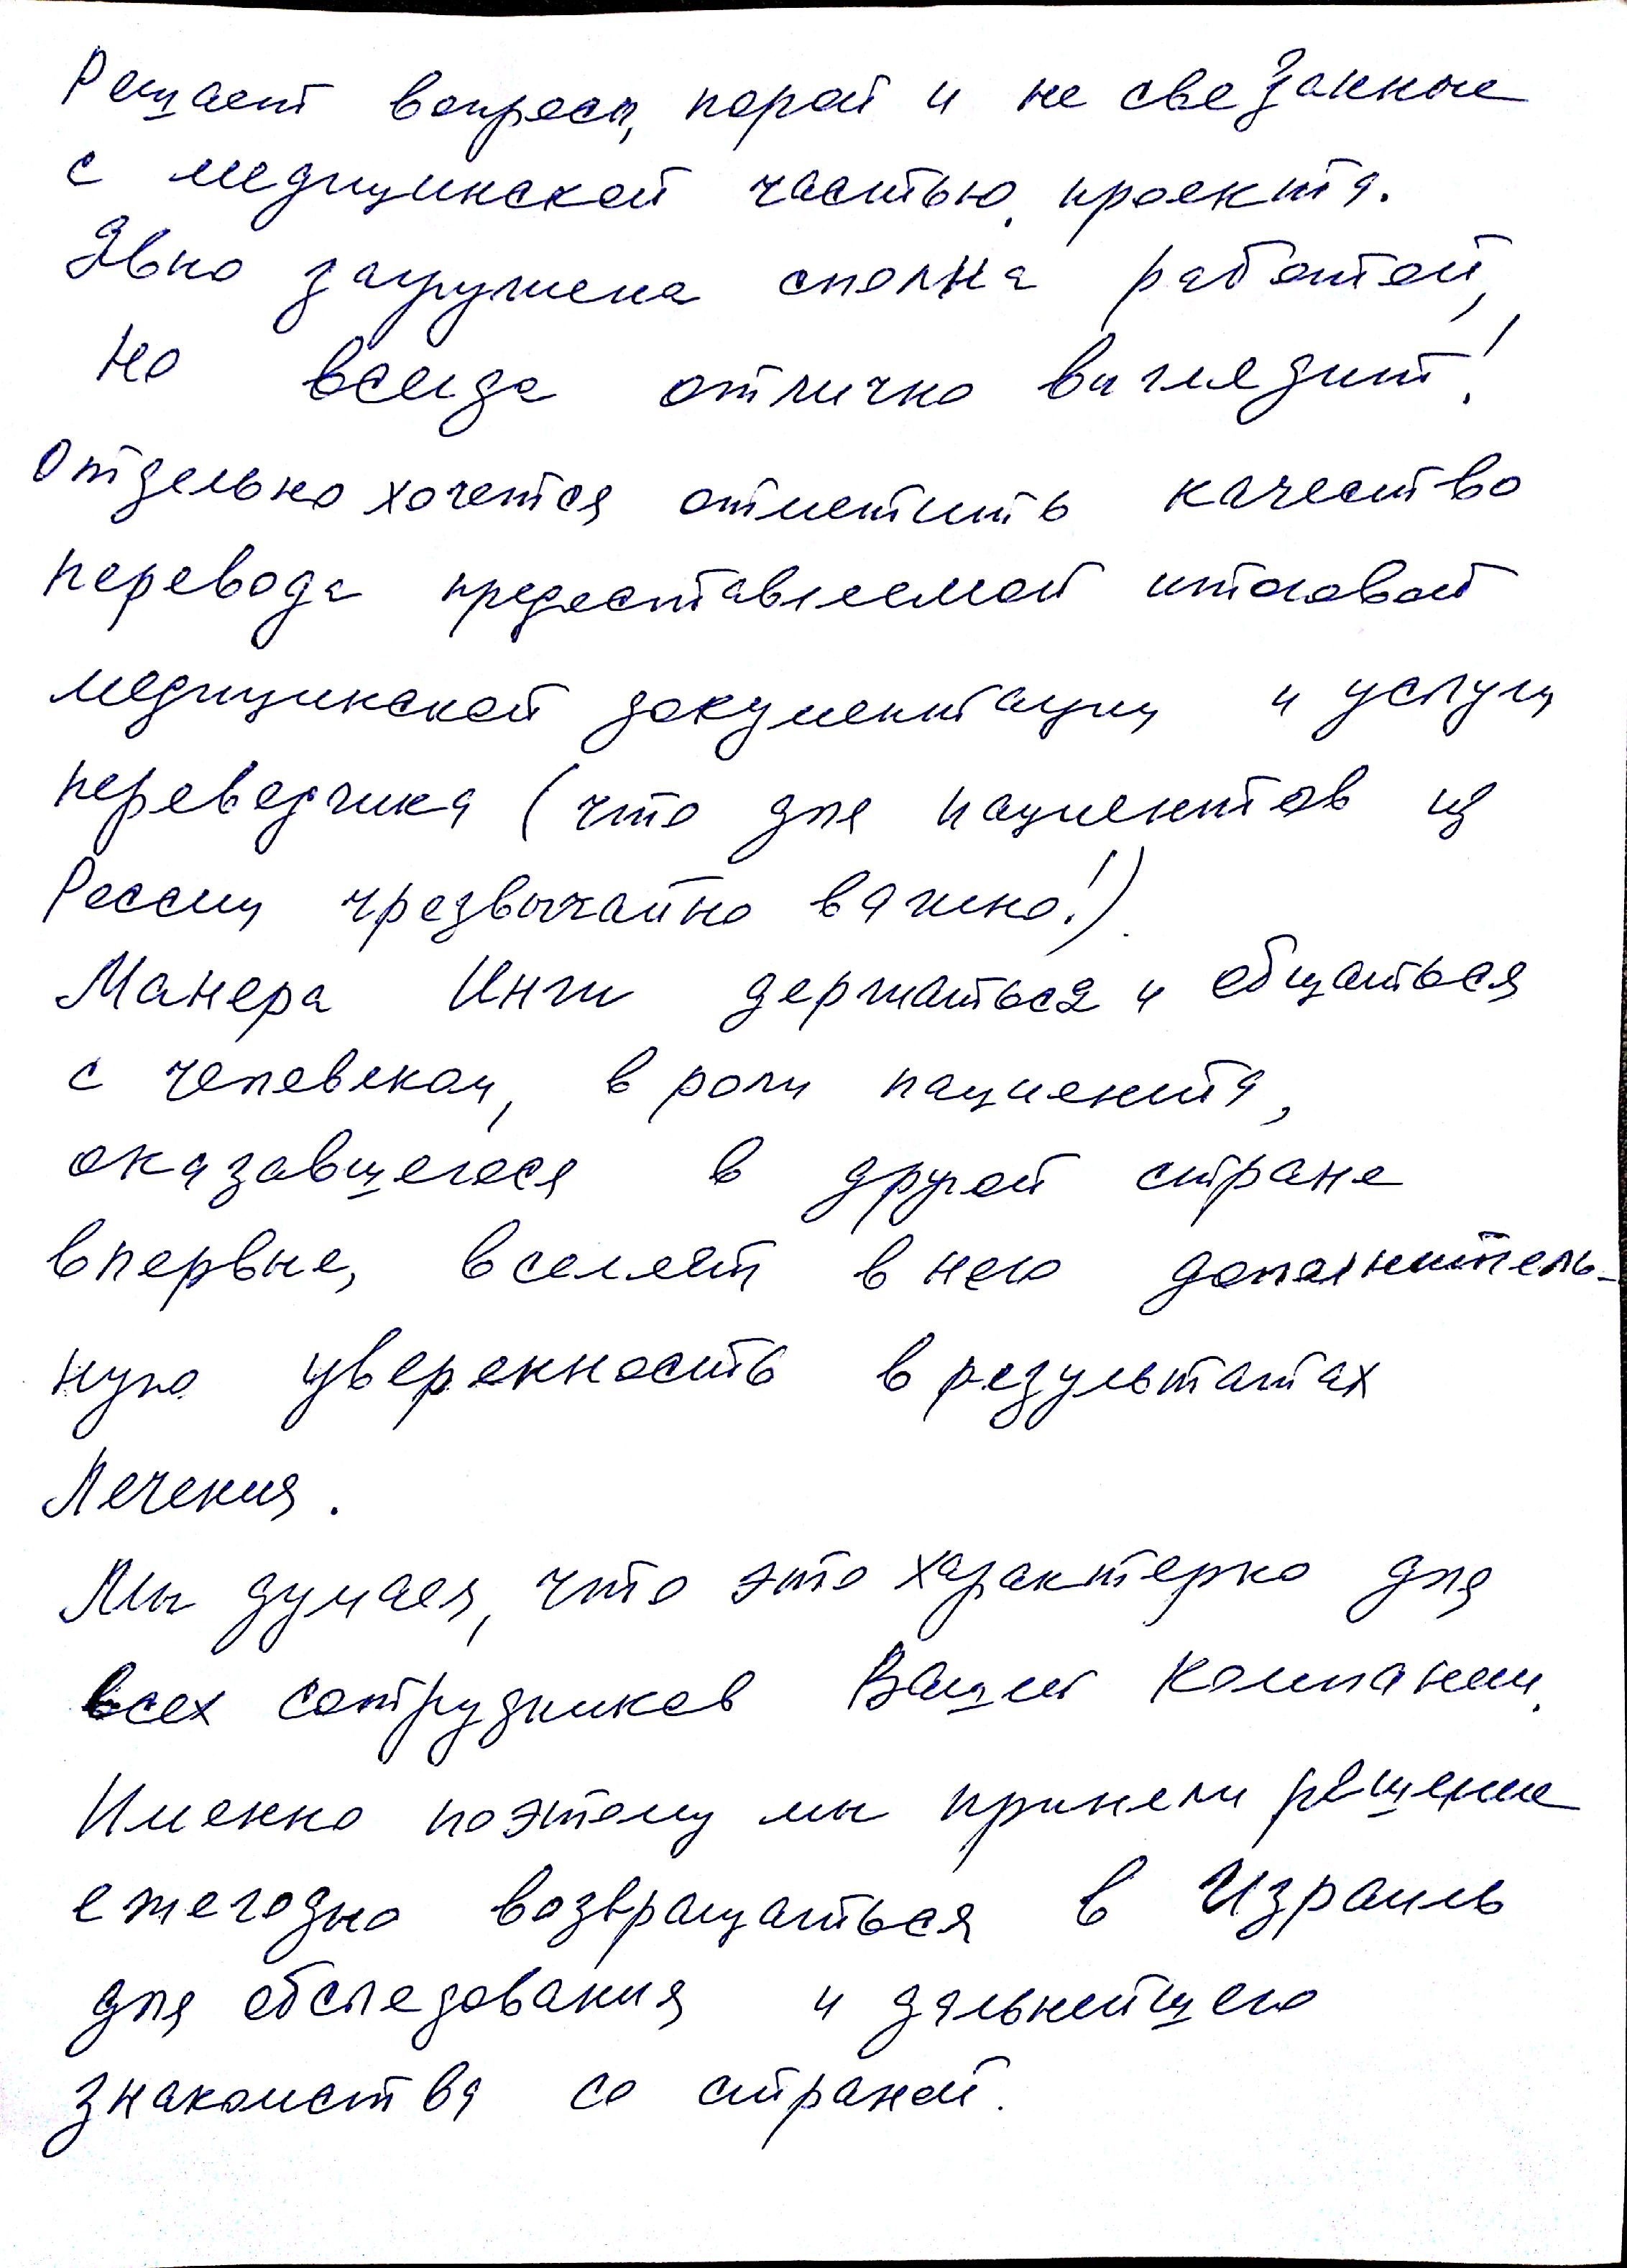 Решает вопросы, порой и не связанные
с медицинской частью проекта.
Явно загружена сполна работой,
но всегда отлично выглядит!
Отдельно хочется отметить качество
перевода предоставляемой итоговой
медицинской документации и услуги
переводчика (что для пациентов из
России чрезвычайно важно!).
Манера Инги держаться и общаться
с человеком, в роли пациента,
оказавшегося в другой стране
впервые, вселяет в него дополнитель-
ную уверенность в результатах
лечения.
Мы думаем, что это характерно для
всех сотрудников Вашей Компании.
Именно поэтому мы приняли решение
ежегодно возвращаться в Израиль
для обследования и дальнейшего
знакомства со страной.